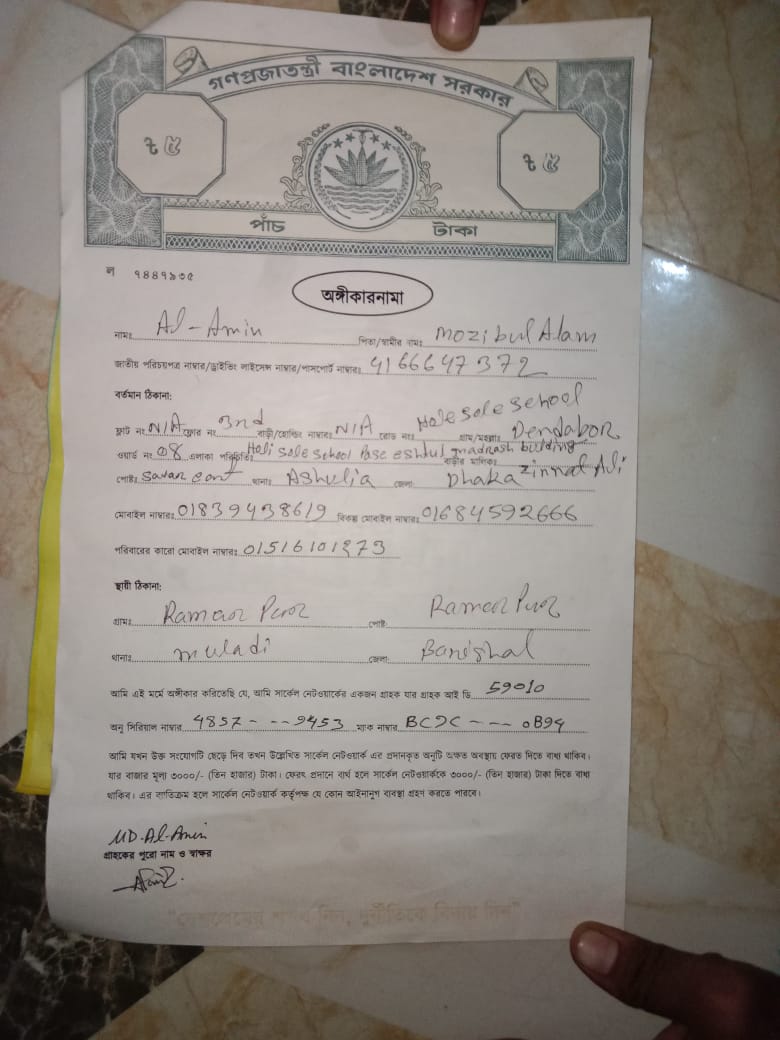 গণপ্রজাতন্ত্রী বাংলাদেশ সরকার
৳ ৫ ৳ ৫
পাঁচ টাকা
ল ৭৪৪৭৯৩৫
অঙ্গীকারনামা
নামঃ Al-Amin পিতা/স্বামীর নামঃ Mozibul Alam
জাতীয় পরিচয়পত্র নাম্বার/ড্রাইভিং লাইসেন্স নাম্বার/পাসপোর্ট নাম্বারঃ 4166647372
বর্তমান ঠিকানা:
ফ্লাট নং N/A ফ্লোর নং 3nd বাড়ী/হোল্ডিং নাম্বারঃ N/A রোড নংঃ Hole sole School গ্রাম/মহল্লাঃ Dendabor
ওয়ার্ড নং 08 এলাকা পরিচিতিঃ Holi sole School building বাড়ীর মালিকঃ Zinnat Ali
পোষ্টঃ Savar cant থানাঃ Ashulia জেলাঃ Dhaka
মোবাইল নাম্বারঃ 01839438619 বিকল্প মোবাইল নাম্বারঃ 01684592666
পরিবারের কারো মোবাইল নাম্বারঃ
স্থায়ী ঠিকানা:
গ্রামঃ পোষ্টঃ
থানাঃ muladi জেলাঃ Barishal
আমি এই মর্মে অঙ্গীকার করিতেছি যে, আমি সার্কেল নেটওয়ার্কের একজন গ্রাহক যার গ্রাহক আই ডি 59010
অনু সিরিয়াল নাম্বার 4857---9453 ম্যাক নাম্বার BC9C---0B94
আমি যখন উক্ত সংযোগটি ছেড়ে দিব তখন উল্লেখিত সার্কেল নেটওয়ার্ক এর প্রদানকৃত অনুটি অক্ষত অবস্থায় ফেরত দিতে বাধ্য থাকিব।
যার বাজার মূল্য ৩০০০/- (তিন হাজার) টাকা। ফেরৎ প্রদানে ব্যর্থ হলে সার্কেল নেটওয়ার্ককে ৩০০০/- (তিন হাজার) টাকা দিতে বাধ্য
থাকিব। এর ব্যতিক্রম হলে সার্কেল নেটওয়ার্ক কর্তৃপক্ষ যে কোন আইনানুগ ব্যবস্থা গ্রহণ করতে পারবে।
MD. Al-Amin
গ্রাহকের পুরো নাম ও স্বাক্ষর
"দেশপ্রেমের শপথ নিন, দুর্নীতিকে বিদায় দিন"